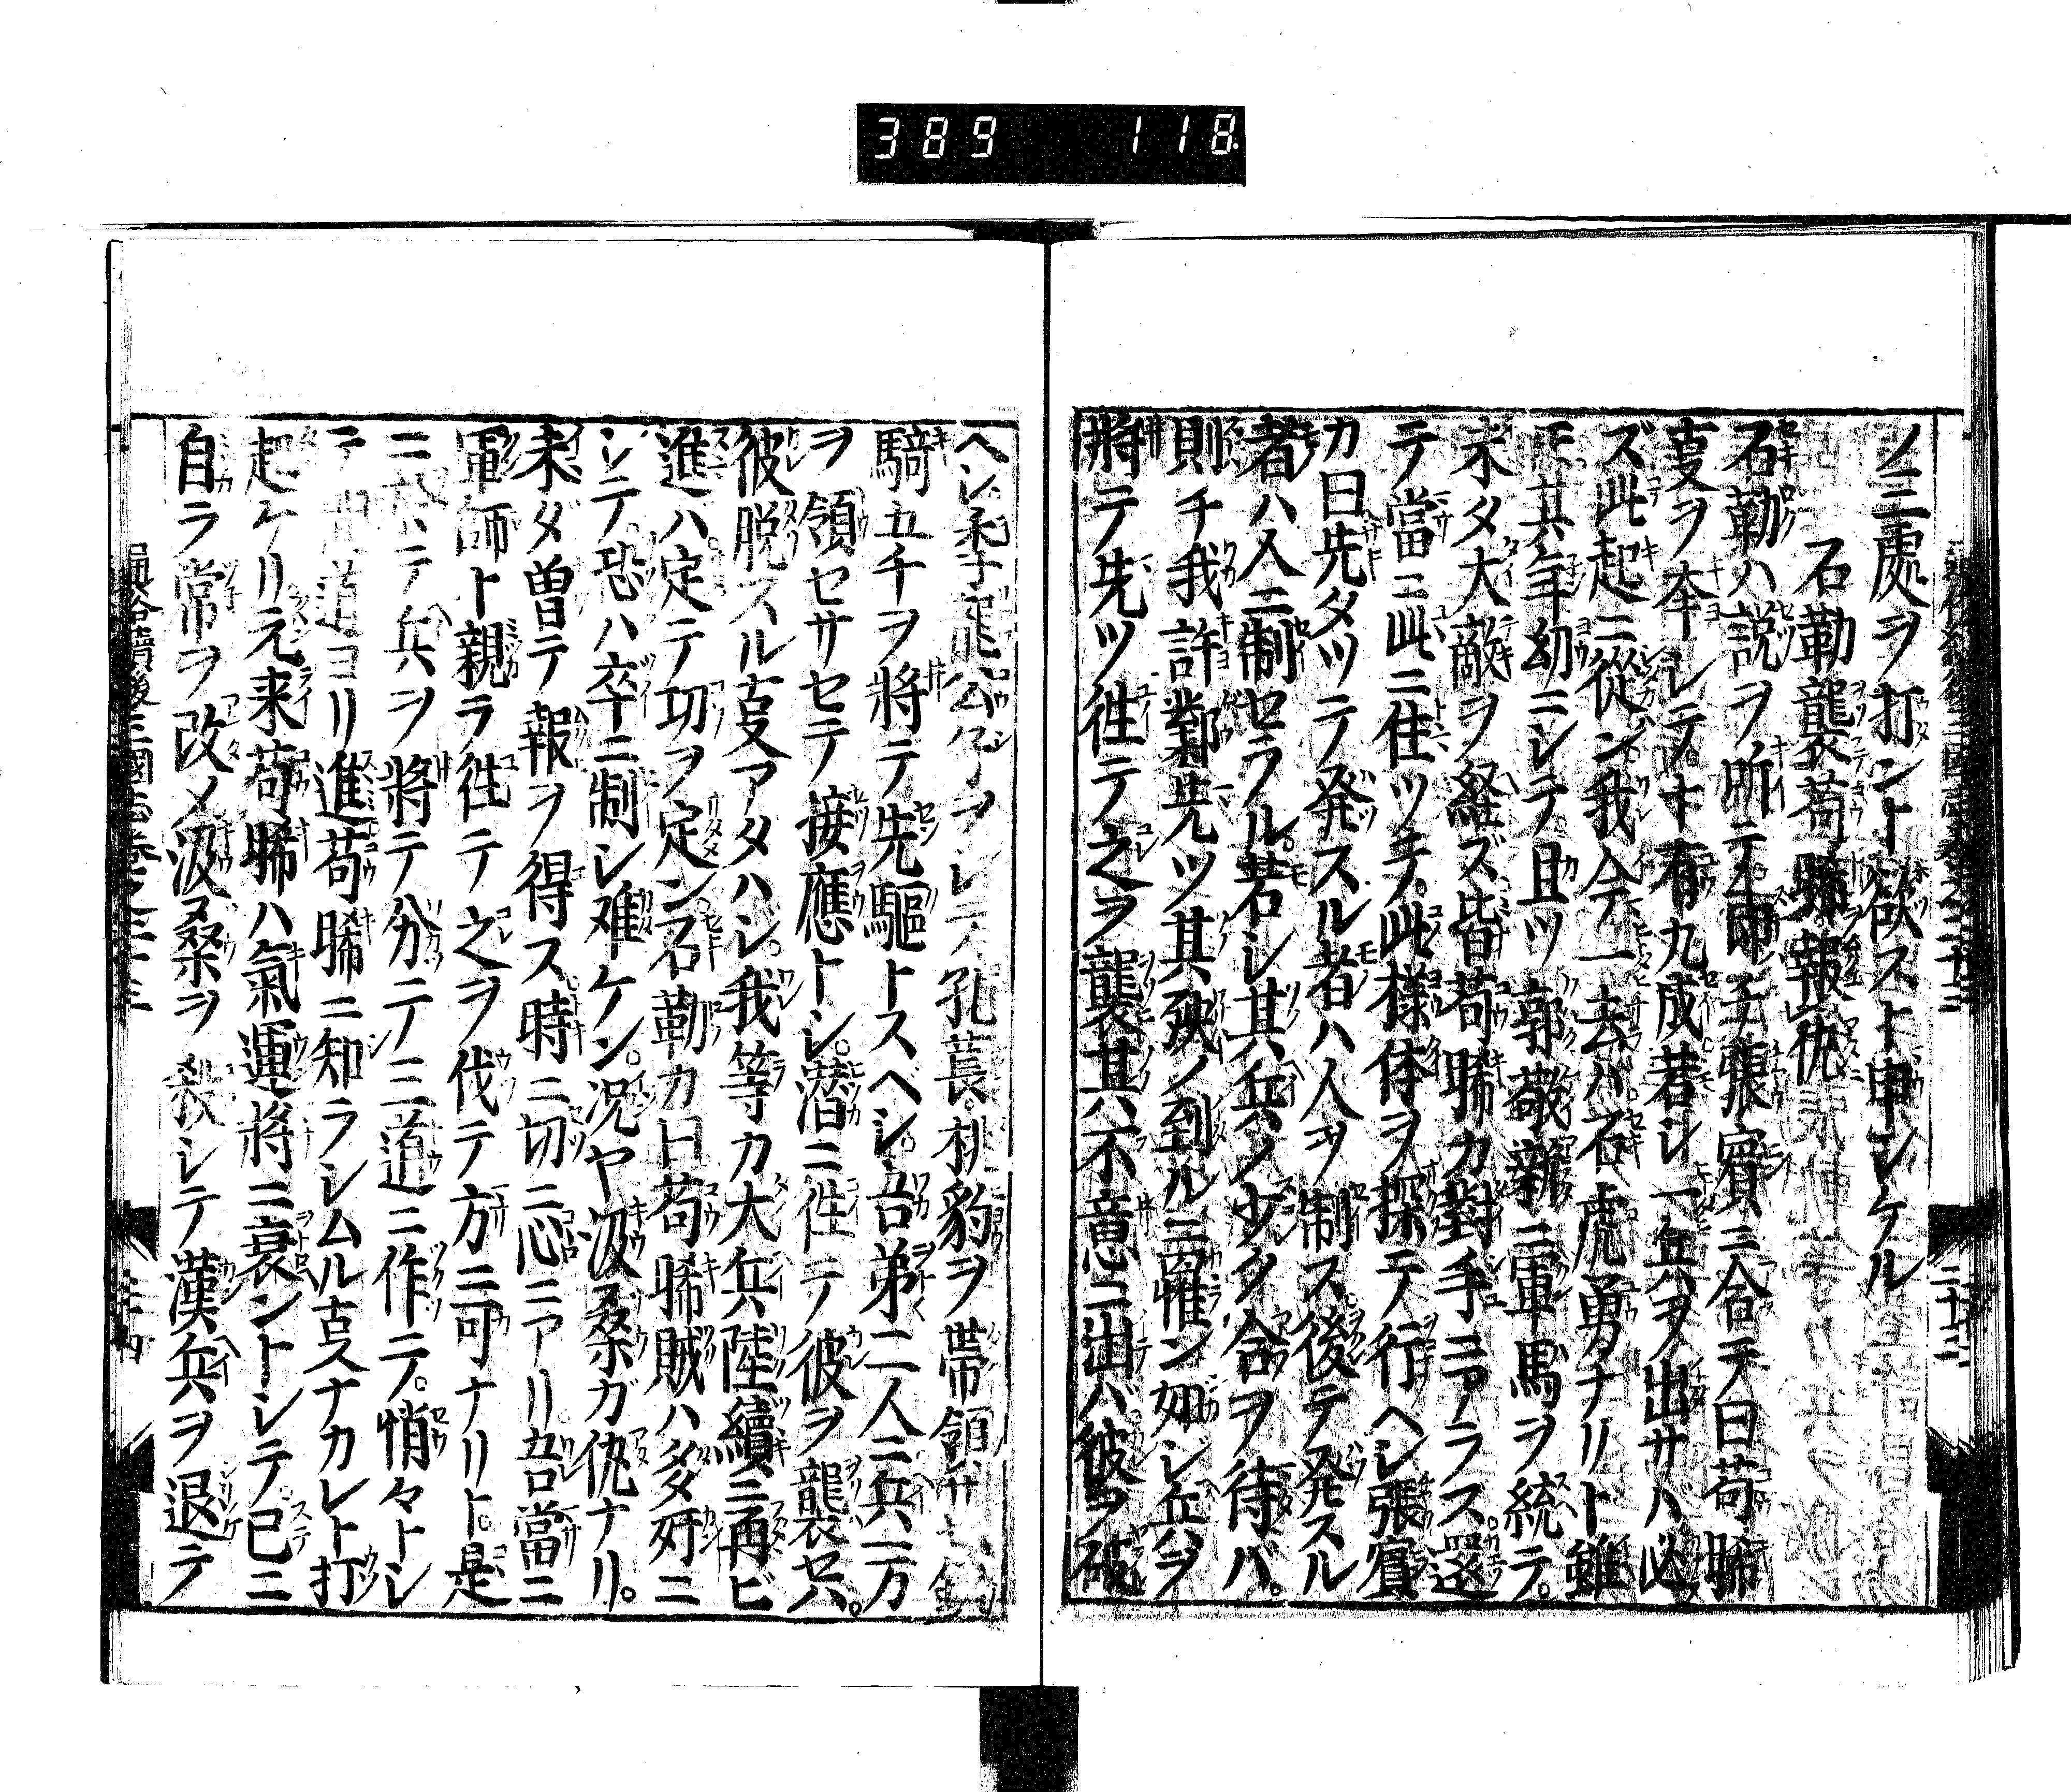 389 118
ノ三處ヲ打ント欲スト申シケル
石勒襲荀晞報仇
石勒ハ説ヲ听テ即チ張賓ニ合テ曰荀晞
夏ヲ本トシテ十有九成若シ一兵ヲ出サハ必
ズ此起ニ從ン我今一去ハ石虎勇ナリト雖
モ其年幼ニシテ且ツ郭敬新ニ軍馬ヲ統テ
未タ大敵ヲ経ズ皆荀晞カ對手ニアラス還
テ當ニ此ニ住ツテ此様体ヲ探テ行ヘシ張賓
カ曰先タツテ発スル者ハ人ヲ制ス後テ発スル
者ハ人ニ制セラル若シ其兵ノ少ク合ヲ待バ
則チ我許鄴先ツ其殃ノ到ルニ罹ン如シ兵ヲ
將テ先ツ徃テ之ヲ襲其不意ニ出バ彼ヲ破
ヘシ孔萇桃豹ヲ帯領
騎五千ヲ將テ先驅トスベシ吾弟二人ニ兵一万
ヲ領セサセテ接應トシ潜ニ徃テ彼ヲ襲セハ
彼脱スル夏アタハシ我等カ大兵陸續ニ再ビ
進ハ定テ功ヲ定ン石勒カ曰荀晞賊ハ多奸ニ
シテ恐ハ卒ニ制シ难ケン況ヤ汲桑ガ仇ナリ
未タ曽テ報ヲ得ス時ニ切ニ心ニアリ吾當ニ
軍師ト親ラ徃テ之ヲ伐テ方ニ可ナリト是
ニテ兵ヲ將テ分テ三道ニ作テ悄々トシ
テ道ヨリ進荀晞ニ知ラシムル夏ナカレト打
起ケリ元来荀晞ハ氣運將ニ衰ントシテ已ニ
自ラ常ヲ改メ汲桑ヲ殺シテ漢兵ヲ退テ